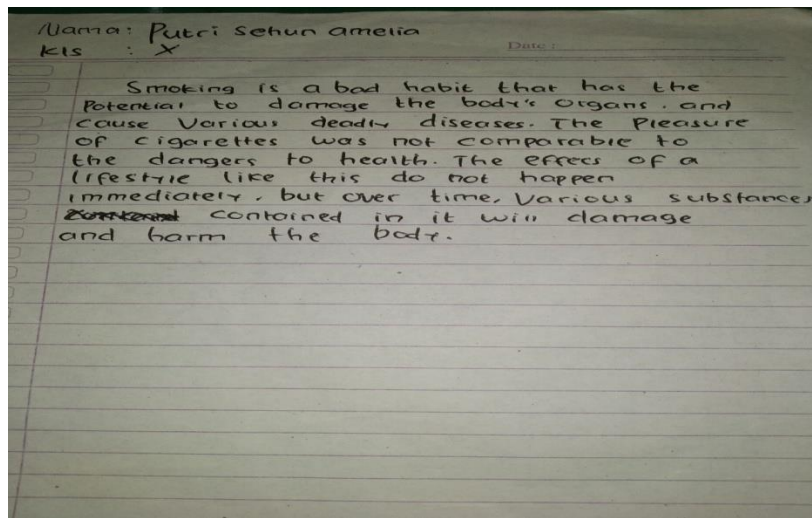 Nama: Putri sehun amelia
Kls : X
Date :
Smoking is a bad habit that has the
Potential to damage the body's organs. and
cause Various deadly diseases. The Pleasure
of cigarettes was not comparable to
the dangers to health. The effecs of a
lifestyle like this do not happen
immediately. but over time, Various substances
contained in it will damage
and harm the body.